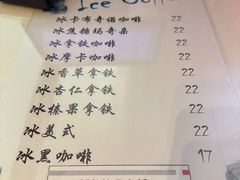 Ice Coffee
冰卡布奇诺咖啡 22
冰焦糖玛奇朵 22
冰拿铁咖啡 22
冰摩卡咖啡 22
冰香草拿铁 22
冰杏仁拿铁 22
冰榛果拿铁 22
冰美式 22
冰黑咖啡 17